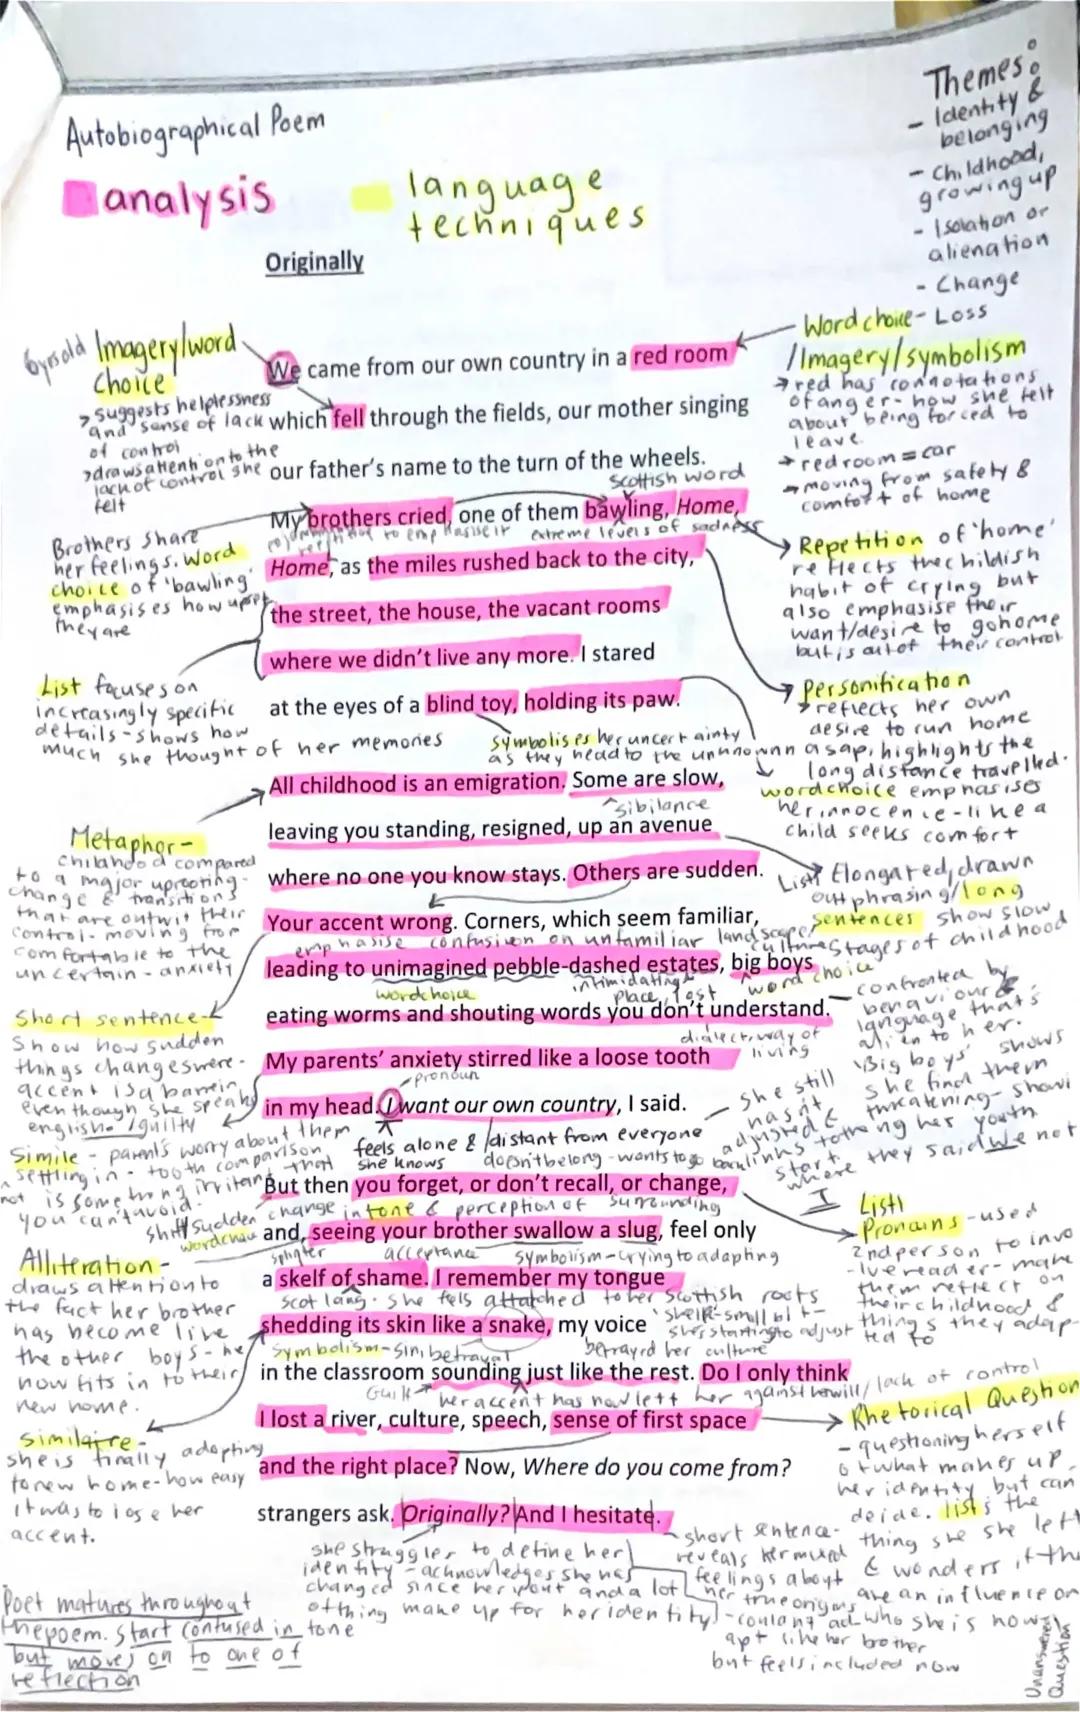 Autobiographical Poem
analysis
language
techniques
Themes:
- Identity &
belonging
- Childhood,
growing up
- Isolation or
alienation
- Change
Originally
6yrs old
Imagery/word
choice
> suggests helplessness
and sense of lack
of control
> draws attention to the
lack of control she
felt
Word choice - Loss
/Imagery/symbolism
→ red has connotations
of anger - how she felt
about being forced to
leave.
→ red room = car
→ moving from safety &
comfort of home
We came from our own country in a red room
which fell through the fields, our mother singing
our father's name to the turn of the wheels.
Scottish word
My brothers cried, one of them bawling, Home,
extreme levels of sadness
Home, as the miles rushed back to the city,
the street, the house, the vacant rooms
where we didn't live any more. I stared
at the eyes of a blind toy, holding its paw.
Brothers share
her feelings. Word
choice of 'bawling'
emphasises how upset
they are
List focuses on
increasingly specific
details - shows how
much she thought of her memories
symbolises her uncertainty
as they head to the unknown
Repetition of 'home'
reflects the childish
habit of crying but
also emphasise their
want/desire to go home
but is out of their control
Personification
> reflects her own
desire to run home
asap, highlights the
long distance travelled.
word choice emphasises
her innocence - like a
child seeks comfort
All childhood is an emigration. Some are slow,
sibilance
leaving you standing, resigned, up an avenue
where no one you know stays. Others are sudden.
Your accent wrong. Corners, which seem familiar,
emphasise confusion on unfamiliar landscape/
culture
leading to unimagined pebble-dashed estates, big boys
word choice
intimidating
place, lost
word choice
eating worms and shouting words you don't understand.
dialect, way of
living
My parents' anxiety stirred like a loose tooth
pronoun
in my head. I want our own country, I said.
feels alone & distant from everyone
she knows
doesn't belong - wants to go back
Metaphor -
childhood compared
to a major uprooting -
change & transitions
that are outwit their
control - moving from
comfortable to the
uncertain - anxiety
Short sentence
Show how sudden
things changes were -
accent is a barrier
even though she speaks
english - guilty
Simile - parents worry about them
settling in - tooth comparison
is something irritant that
you can't avoid.
List Elongated, drawn
out phrasing/long
sentences show slow
stages of childhood
confronted by
behaviour &
language that's
alien to her.
'Big boys' shows
she find them
threatening - showing
her youth
she still
hasn't
adjusted &
links to the
start
where they said We not
I
But then you forget, or don't recall, or change,
shift/sudden change in tone & perception of surrounding
word choice
and, seeing your brother swallow a slug, feel only
acceptance
symbolism - crying to adapting
a skelf of shame. I remember my tongue
Scot lang. She fels attatched to her Scottish roots
shedding its skin like a snake, my voice
'skelf' - small bit -
she's starting to adjust
Symbolism - sin, betrayal
betrayed her culture
in the classroom sounding just like the rest. Do I only think
Guilt
her accent has now left her against her will/lack of control
I lost a river, culture, speech, sense of first space
and the right place? Now, Where do you come from?
strangers ask. Originally? And I hesitate.
Alliteration -
draws attention to
the fact her brother
has become like
the other boys - he
now fits in to their
new home.
she is finally adapting
to new home - how easy
it was to lose her
accent.
List
Pronouns - used
2nd person to invo
-lve reader - make
them reflect on
their childhood &
things they adap-
ted to
Rhetorical Question
- questioning herself
of what makes up
her identity but can
lists the
thing she she left
& wonders if the
are an influence on
who she is now
she struggles to define her
identity - acknowledges she has
changed since her youth and a lot
of thing make up for her identity
short sentence -
reveals her mixed
feelings about
her true origins
- couldn't ad
apt like her brother
but feels included now
Unanswered
Question
Poet matures throughout
the poem. Start confused in tone
but moves on to one of
reflection